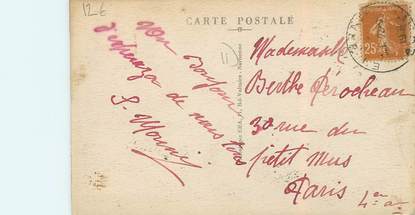 12€
CARTE POSTALE
Mon bonjour
de nous tous
S. Mouni
Mademoiselle
Berthe Pérocheau
30 rue du
Petit Mus
Paris 4e
25